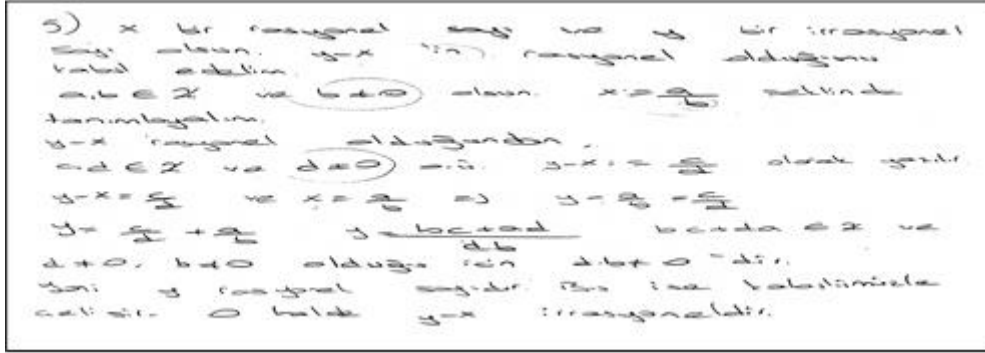 5) x bir rasyonel sayı ve y bir irrasyonel
sayı olsun. y-x 'in rasyonel olduğunu
kabul edelim.
a,b ∈ Z ve b≠0 olsun. x = a/b şeklinde
tanımlayalım.
y-x rasyonel olduğundan,
c,d ∈ Z ve d≠0 ö.ü. y-x = c/d olarak yazılır.
y-x = c/d ve x = a/b => y - a/b = c/d
y = c/d + a/b y = bc+ad/db bc+da ∈ Z ve
d≠0, b≠0 olduğu için d.b≠0 'dır.
Yani y rasyonel sayıdır. Bu ise kabulümüzle
çelişir. O halde y-x irrasyoneldir.